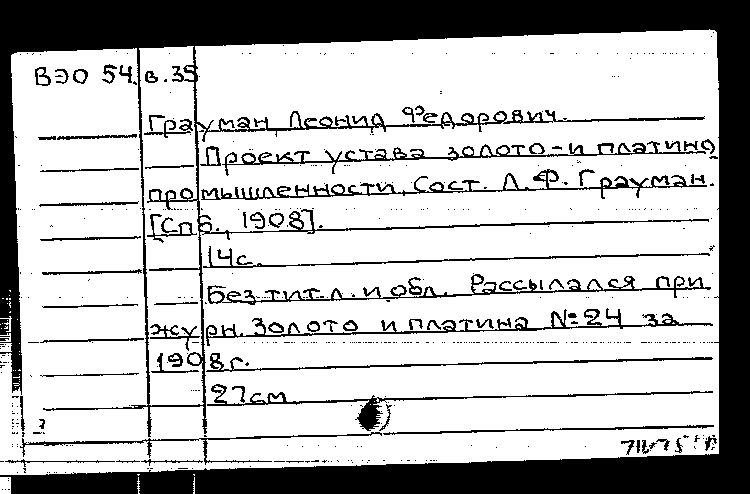 ВЭО 54.в.35
Грауман, Леонид Федорович.
Проект устава золото-и платино
промышленности, Сост. Л. Ф. Грауман.
[Спб., 1908].
14с.
Без тит.л. и обл. Рассылался при
журн. Золото и платина №24 за
1908г.
27см